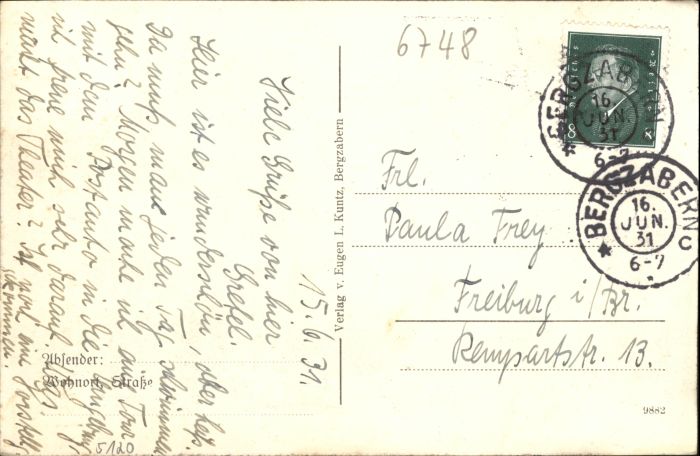 6748
BERGZABERN
16.
JUN.
31
6-7
BERGZABERN
16.
JUN.
31
6-7
8 8
Frl.
Paula Frey
Freiburg i/Br.
Rempartstr. 13.
9882
Verlag v. Eugen L. Kuntz, Bergzabern
15.6.31.
Viele Grüße von hier
Gretel.
Hier ist es wunderschön, aber heiß.
Da muß man jeden Tag schwimmen
gehn? Morgen mache ich eine Tour
mit dem Postauto in die Umgebung,
ich freue mich sehr darauf. Was
macht das Theater? Ist noch eine Vorstellg.
gekommen.
Absender:
Wohnort, Straße
5120